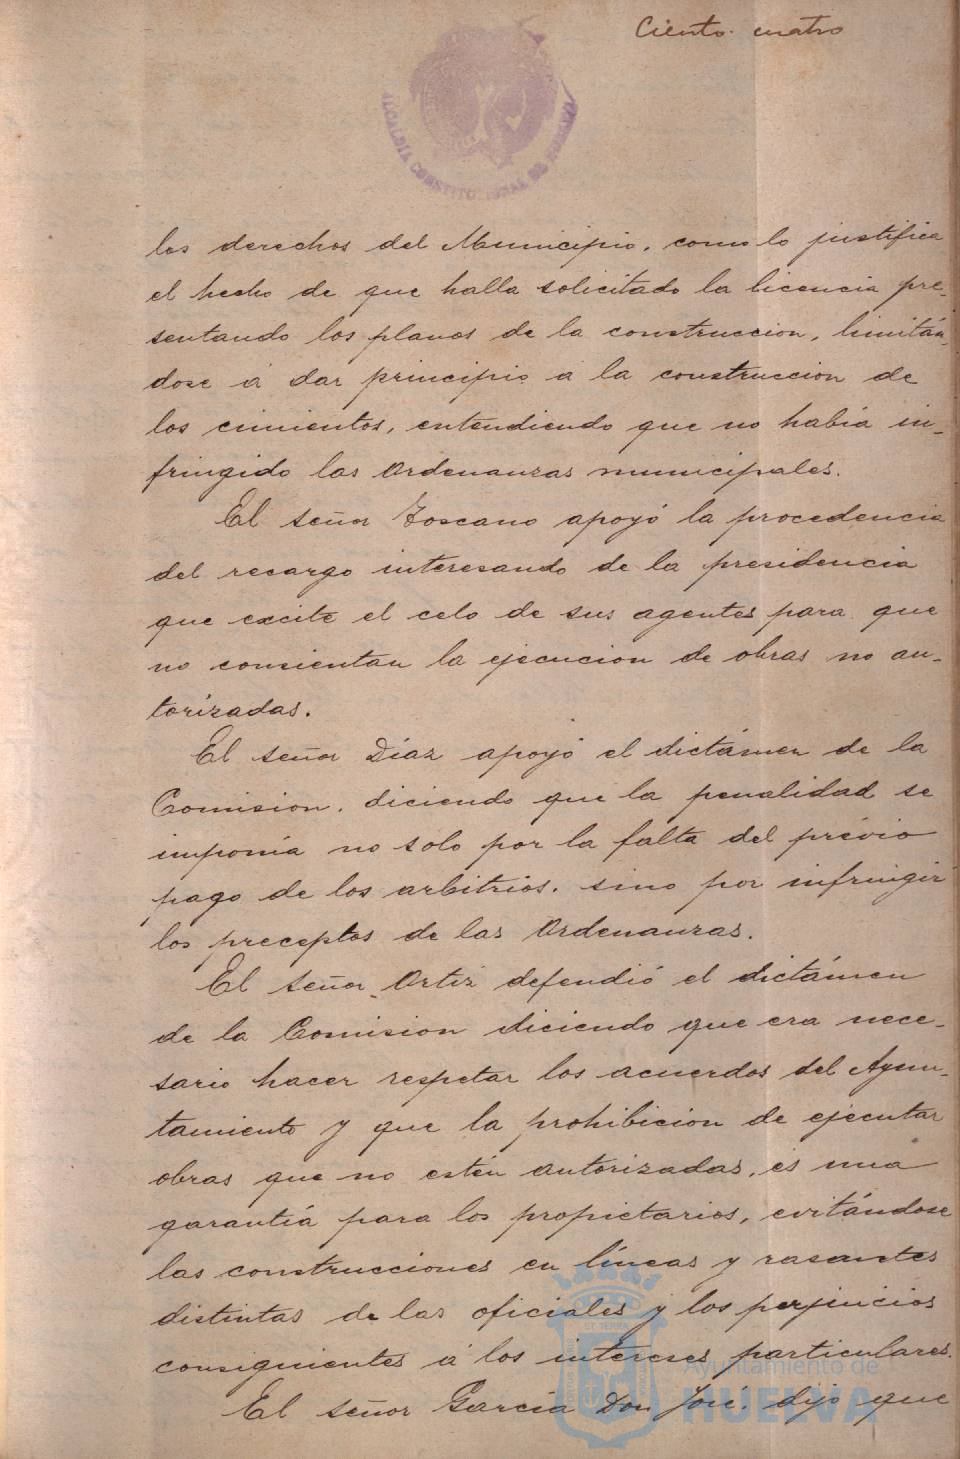 Ciento cuatro
ALCALDÍA CONSTITUCIONAL DE
los derechos del Municipio, como lo justifica
el hecho de que halla solicitado la licencia pre-
sentando los planos de la construccion, limitán-
dose á dar principio a la construccion de
los cimientos, entendiendo que no habia in-
fringido las Ordenanzas municipales.
El señor Toscano apoyó la procedencia
del recargo interesando de la presidencia
que excite el celo de sus agentes para que
no consientan la ejecucion de obras no au-
torizadas.
El señor Díaz apoyó el dictámen de la
Comision, diciendo que la penalidad se
imponía no solo por la falta del prévio
pago de los arbitrios, sino por infringir
los preceptos de las Ordenanzas.
El señor Ortiz defendió el dictámen
de la Comision diciendo que era nece-
sario hacer respetar los acuerdos del Ayun-
tamiento y que la prohibicion de ejecutar
obras que no estén autorizadas, es una
garantía para los propietarios, evitándose
las construcciones en líneas y rasantes
distintas de las oficiales y los perjuicios
consiguientes á los intereses particulares.
El señor García Don José, dijo que
Ayuntamiento de
HUELVA